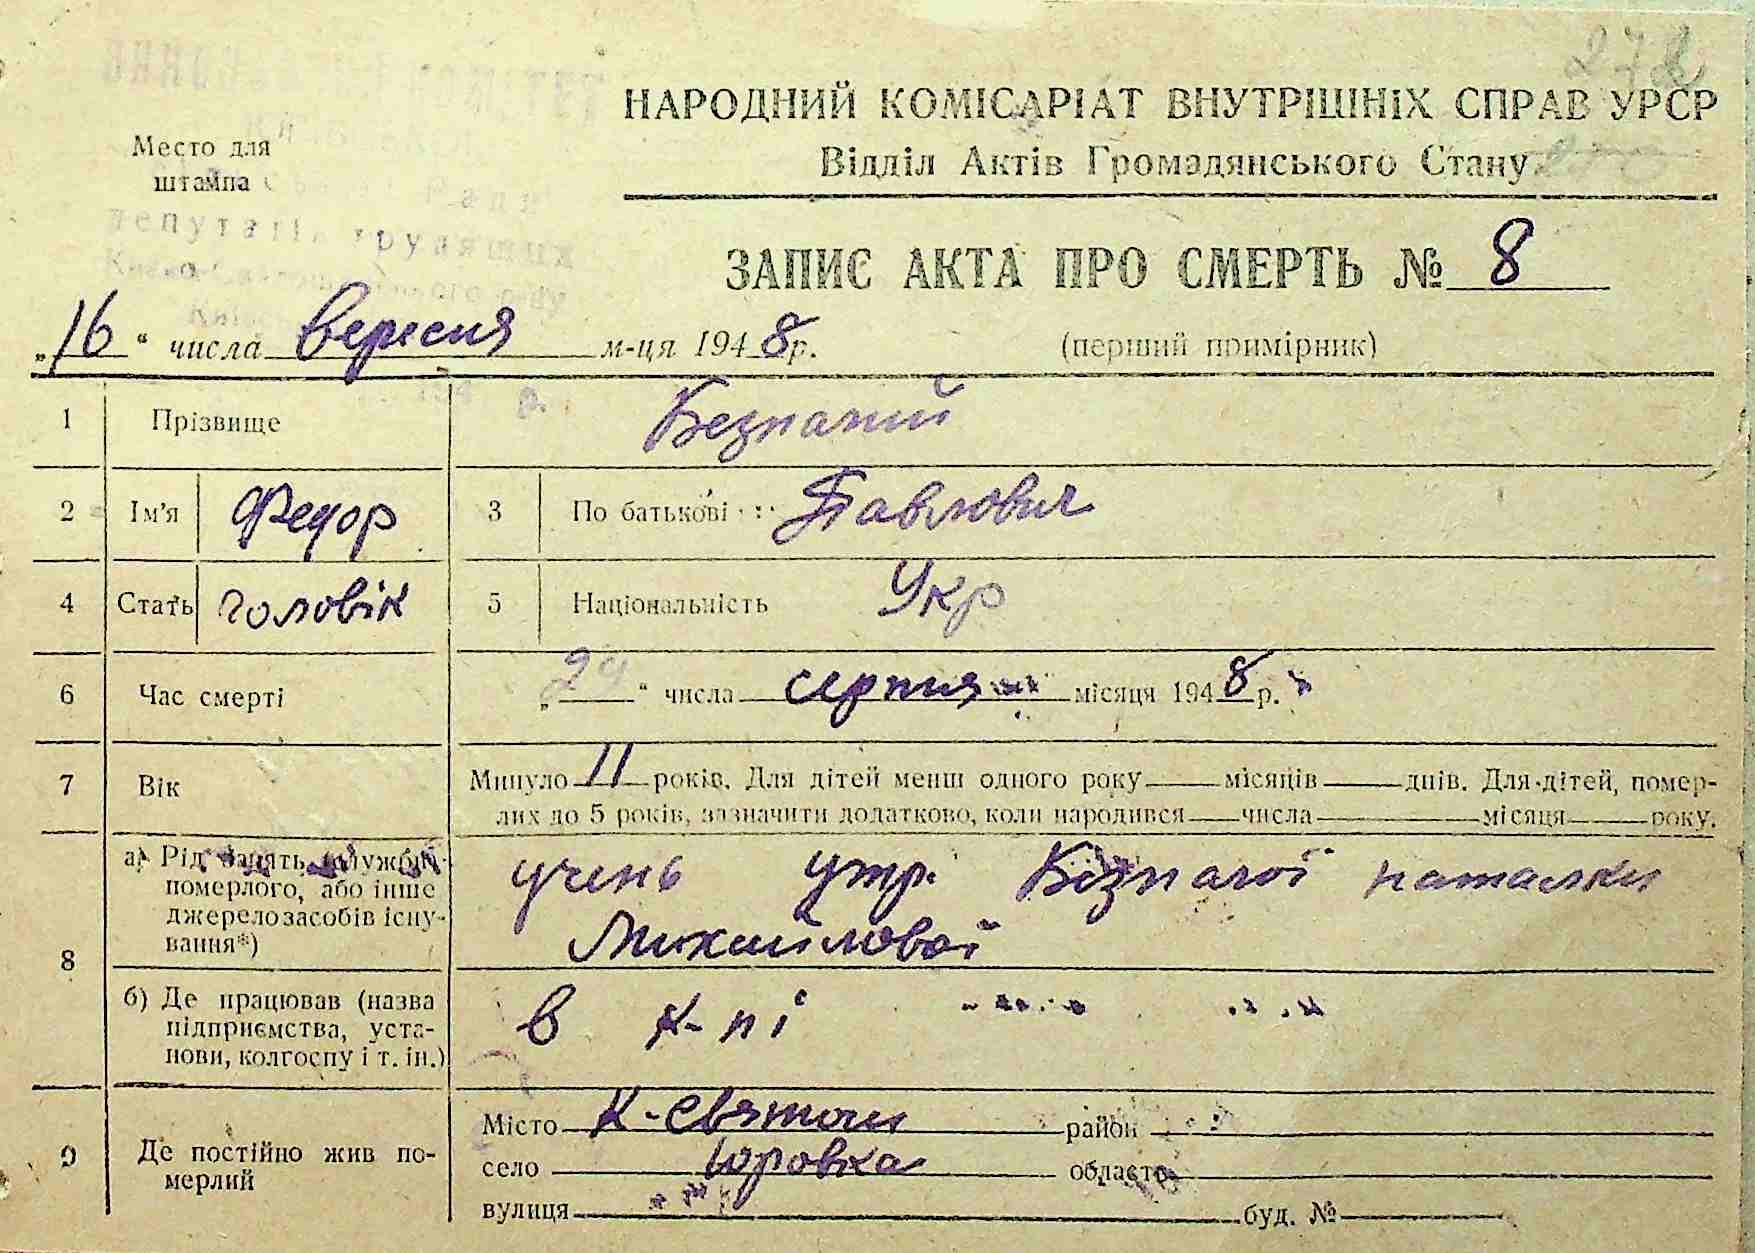 272
НАРОДНИЙ КОМІСАРІАТ ВНУТРІШНІХ СПРАВ УРСР
Відділ Актів Громадянського Стану
Место для
штампа
депутатів трудящих
ЗАПИС АКТА ПРО СМЕРТЬ № 8
„16“ числа вересня м-ця 1948 р. (перший примірник)
1 Прізвище Безпалий
2 Ім'я Федор 3 По батькові Павлович
4 Стать чоловік 5 Національність Укр
6 Час смерті „29“ числа серпня місяця 1948 р.
7 Вік Минуло 11 років. Для дітей менш одного року місяців днів. Для дітей, помер-
лих до 5 років, зазначити додатково, коли народився числа місяця року.
8 а) Рід занять (службу) померлого, або інше джерело засобів існування*) учень утр. Безпалої наталки
Михайлової
б) Де працював (назва підприємства, установи, колгоспу і т. ін.) в к-пі
9 Де постійно жив померлий Місто К-Святош район
село Юровка область
вулиця буд. №